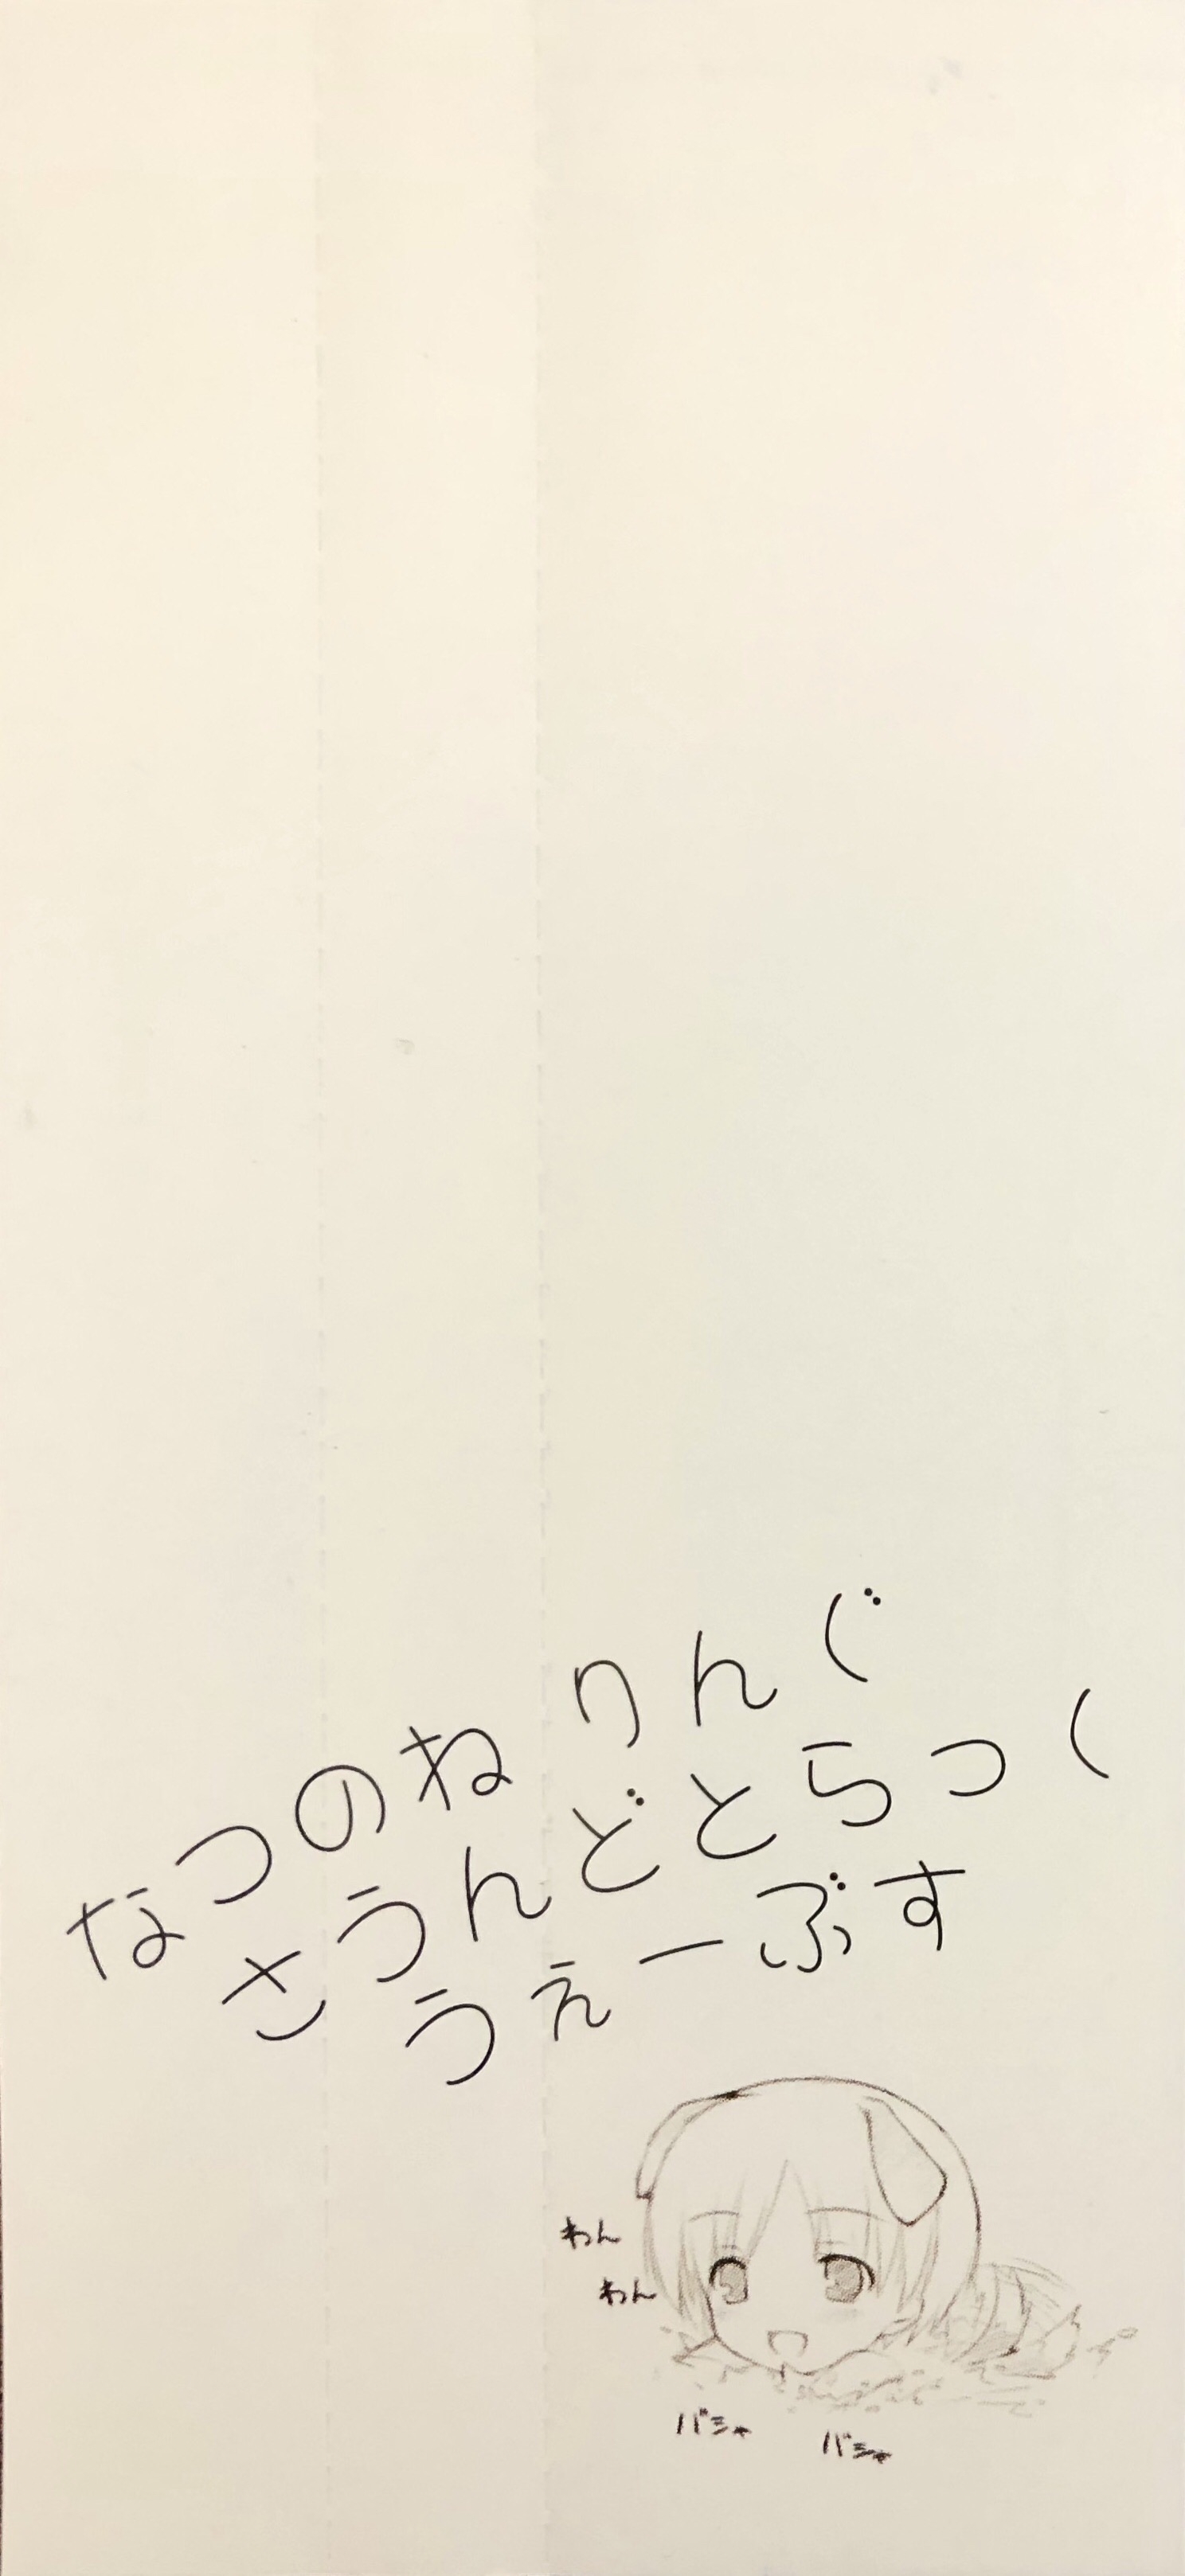 なつのねりんぐ
さうんどとらっく
うぇーぶす
わん
わん
バシャ
バシャ